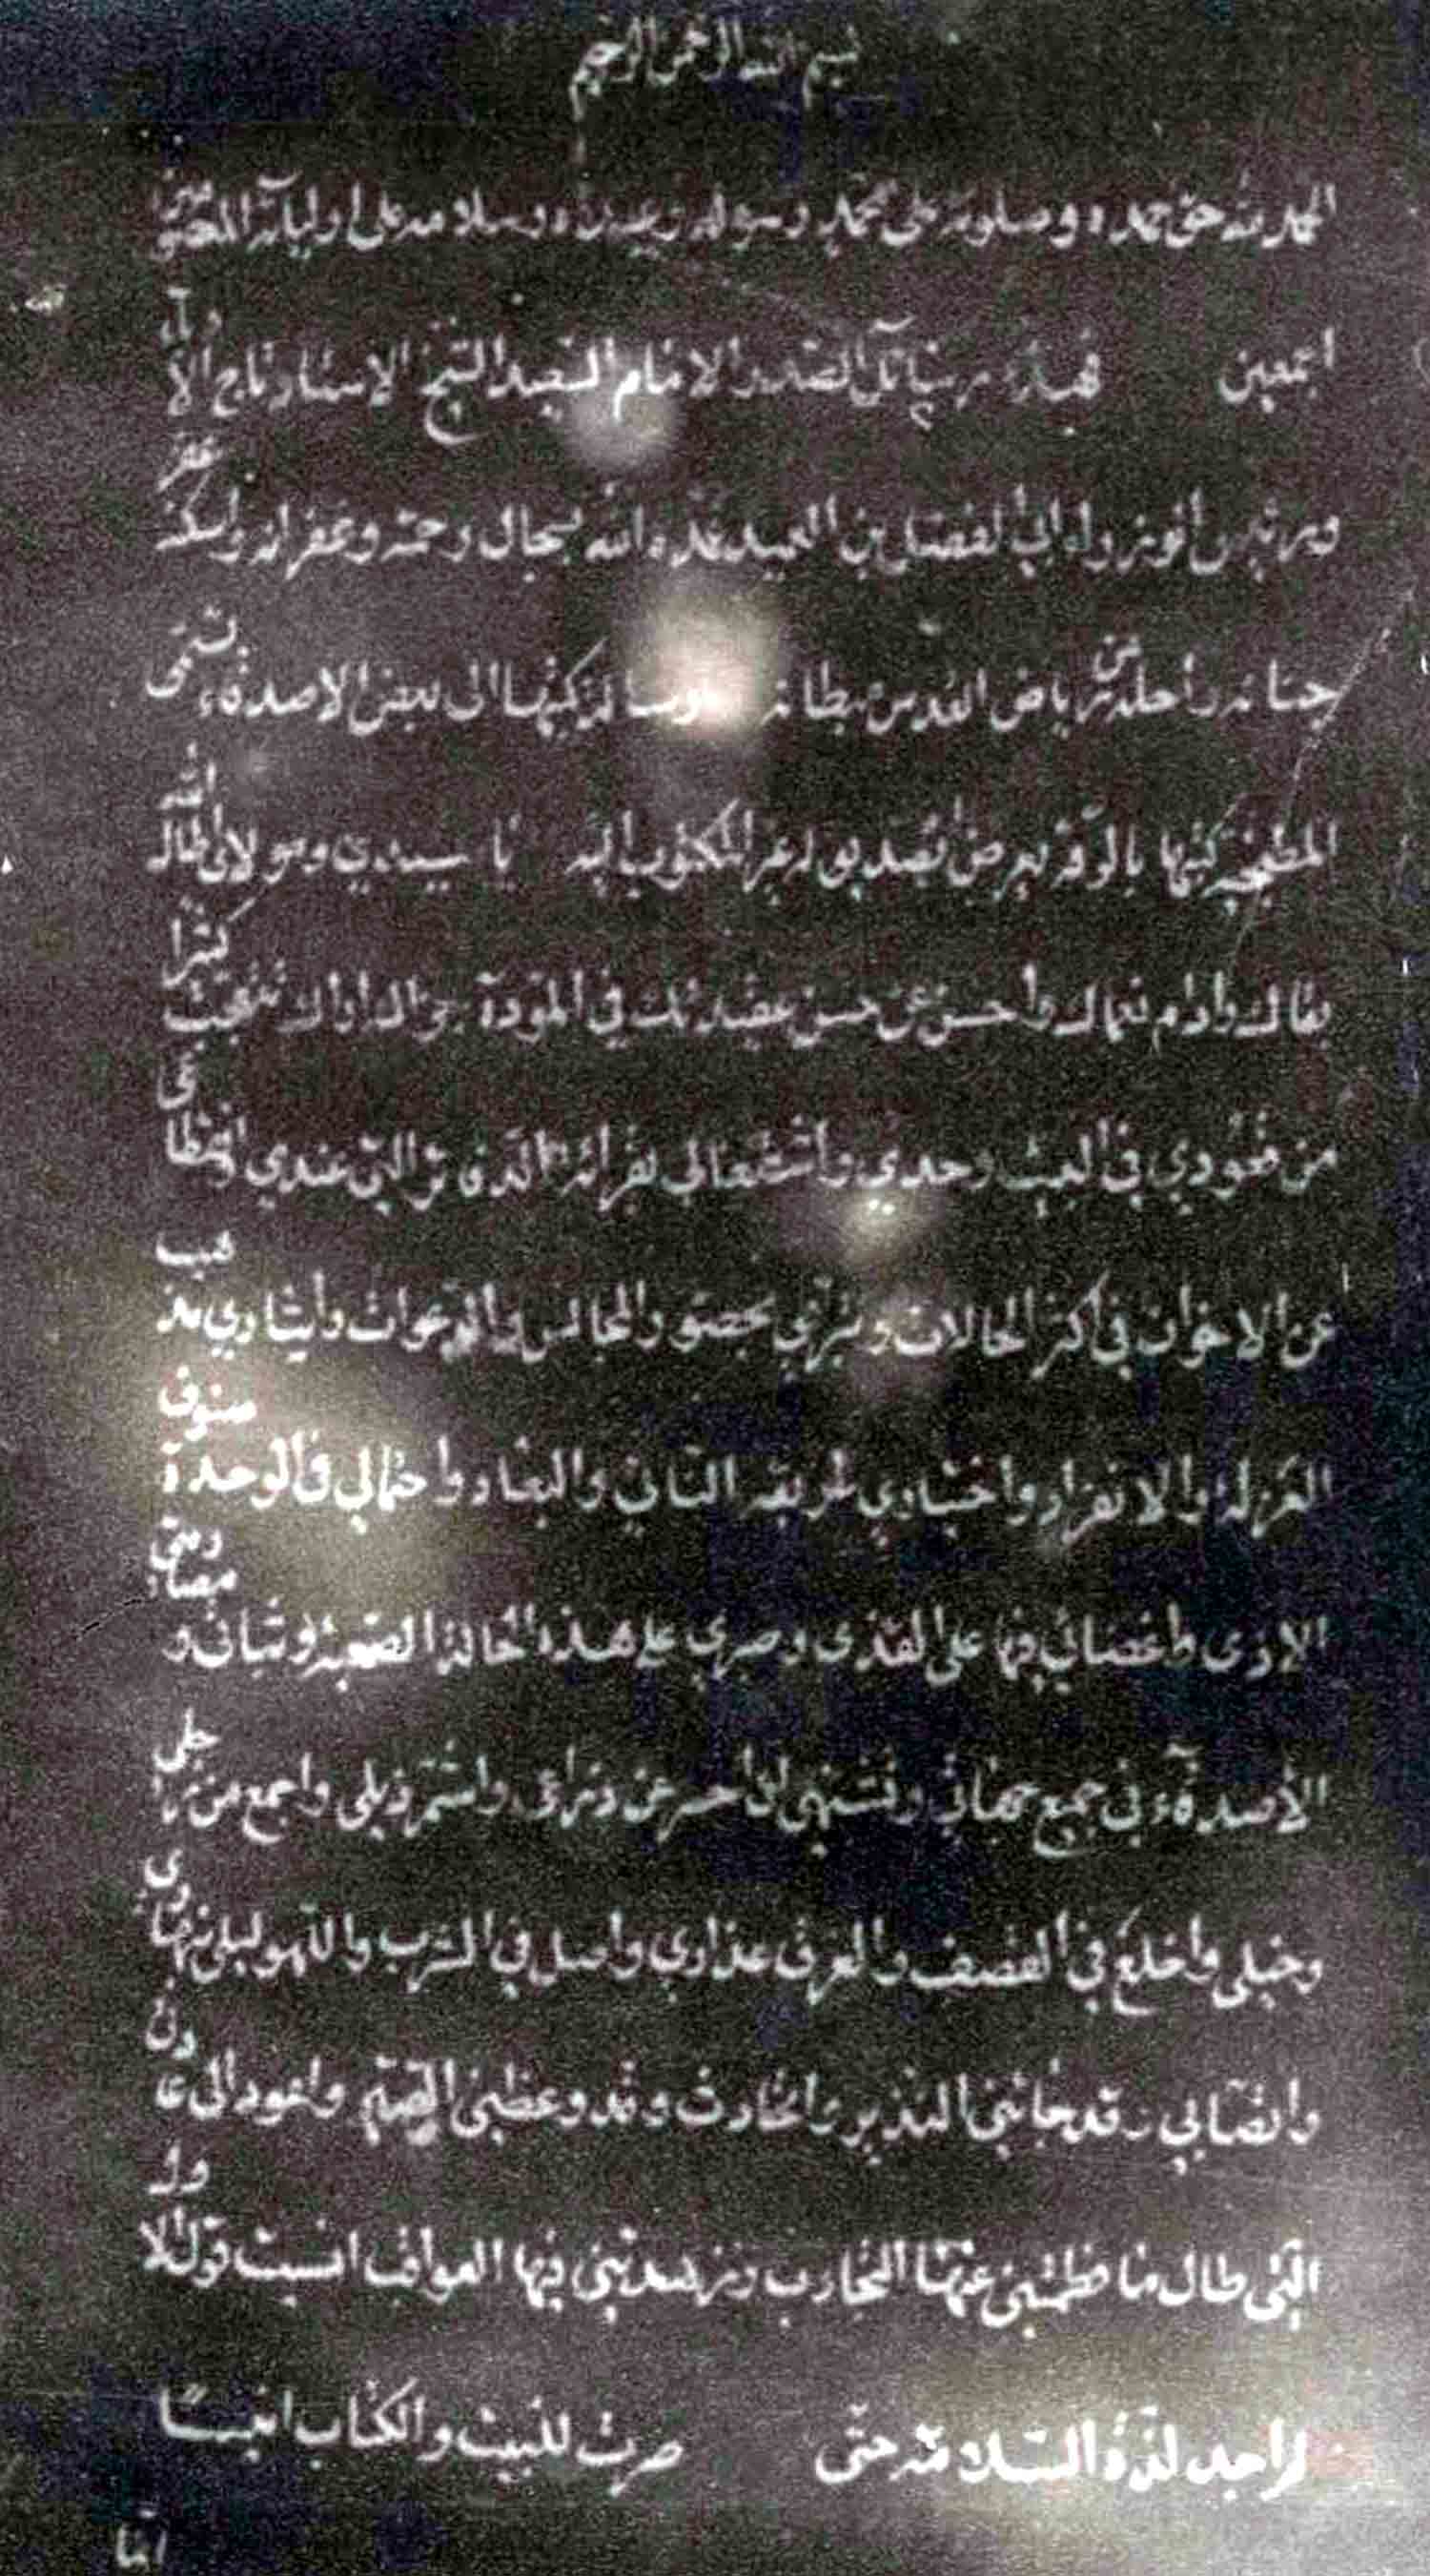 بسم الله الرحمن الرحيم
الحمد لله حق حمده وصلوته على محمد رسوله وعبده وسلامه على اوليائه
اجمعين فهذه رسائل الصدر الامام السعيد الشيخ الاستاد تاج الادباء
ابي الفضل بن العميد تغمده الله بسجال رحمته وغفرانه واسكنه
جنانه واحله من رياض القدس كتبها الى بعض الاصدقاء تسمى
كتبها بالري المكتوب اليه يا سيدي ومولاي اطال الله
بقاك وادام نعماك واحسن عن حسن عقيدتك في المودة جزاك اراك تتعجب كثيرا
من قعودي في البيت وحدي واشتغالي بقرائة الدفاتر التي عندي وانقطاعي
عن الاخوان في اكثر الحالات وتبرمي بحضور المجالس والدعوات وايثاري مذهب
العزلة والانفراد واختياري طريقة التنائي والبعاد واحتمالي في الوحدة صنوف
الاذى واغضائي فيها على القذى وصبري على هذه الحالة الصعبة
الاصدقاء في جميع جهاتي وتشتهي ان احسر عن ذراعي واشمر ذيلي واجمع من رجلي
وخيلي واخلع في القصف والعزف عذاري واصل في الشرب واللهو ليلي بنهاري
وقد جائني النذير وقد وعظني واعود الى عادتي
التي طال ما فطمتني عنها التجارب وزهدتني فيها العواقب انسيت قول الاول
لم اجد لذة السلامة حتى صرت للبيت والكتاب انيسا
اما